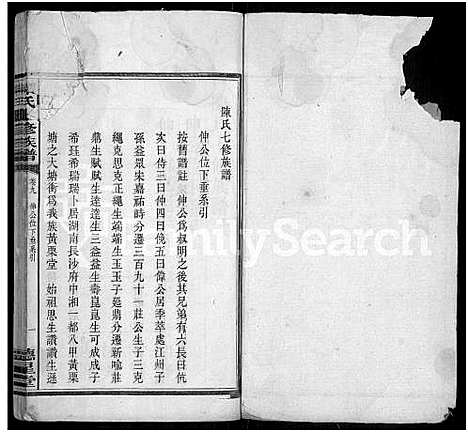 陳氏七修族譜
伸公位下垂系引
按舊譜註 伸公為叔明之後其兄弟有六長曰伉
次曰侍三曰仲四曰俄五曰偉公居季萃處江州子
孫益眾宋嘉祐時分遷三百九十一莊公生子三克
繩克思克正克端端生玉玉子延鼎分遷新喻莊
鼎生賦賦生達達生三益益生壽崑崑生可成成子
希珏希瑞瑞卜居湖南長沙府甲湘一都八甲黃栗
塘之大塘衝為我族黃栗堂 始祖思生讚讚生遜
氏七修族譜
卷九 伸公位下垂系引
一
德星堂
FamilySearch